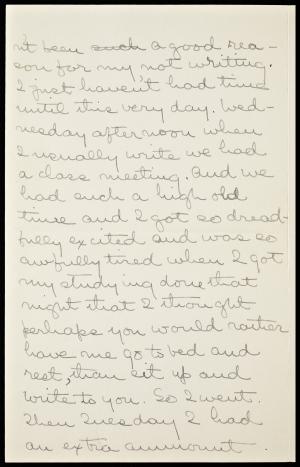 n't been such a good rea-
son for my not writing.
I just haven't had time
until this very day. Wed-
nesday afternoon when
I usually write we had
a class meeting. And we
had such a high old
time and I got so dread-
fully excited and was so
awfully tired when I got
my studying done that
night that I thought
perhaps you would rather
have me go to bed and
rest, than sit up and
write to you. So I went.
Then Tuesday I had
an extra ammount